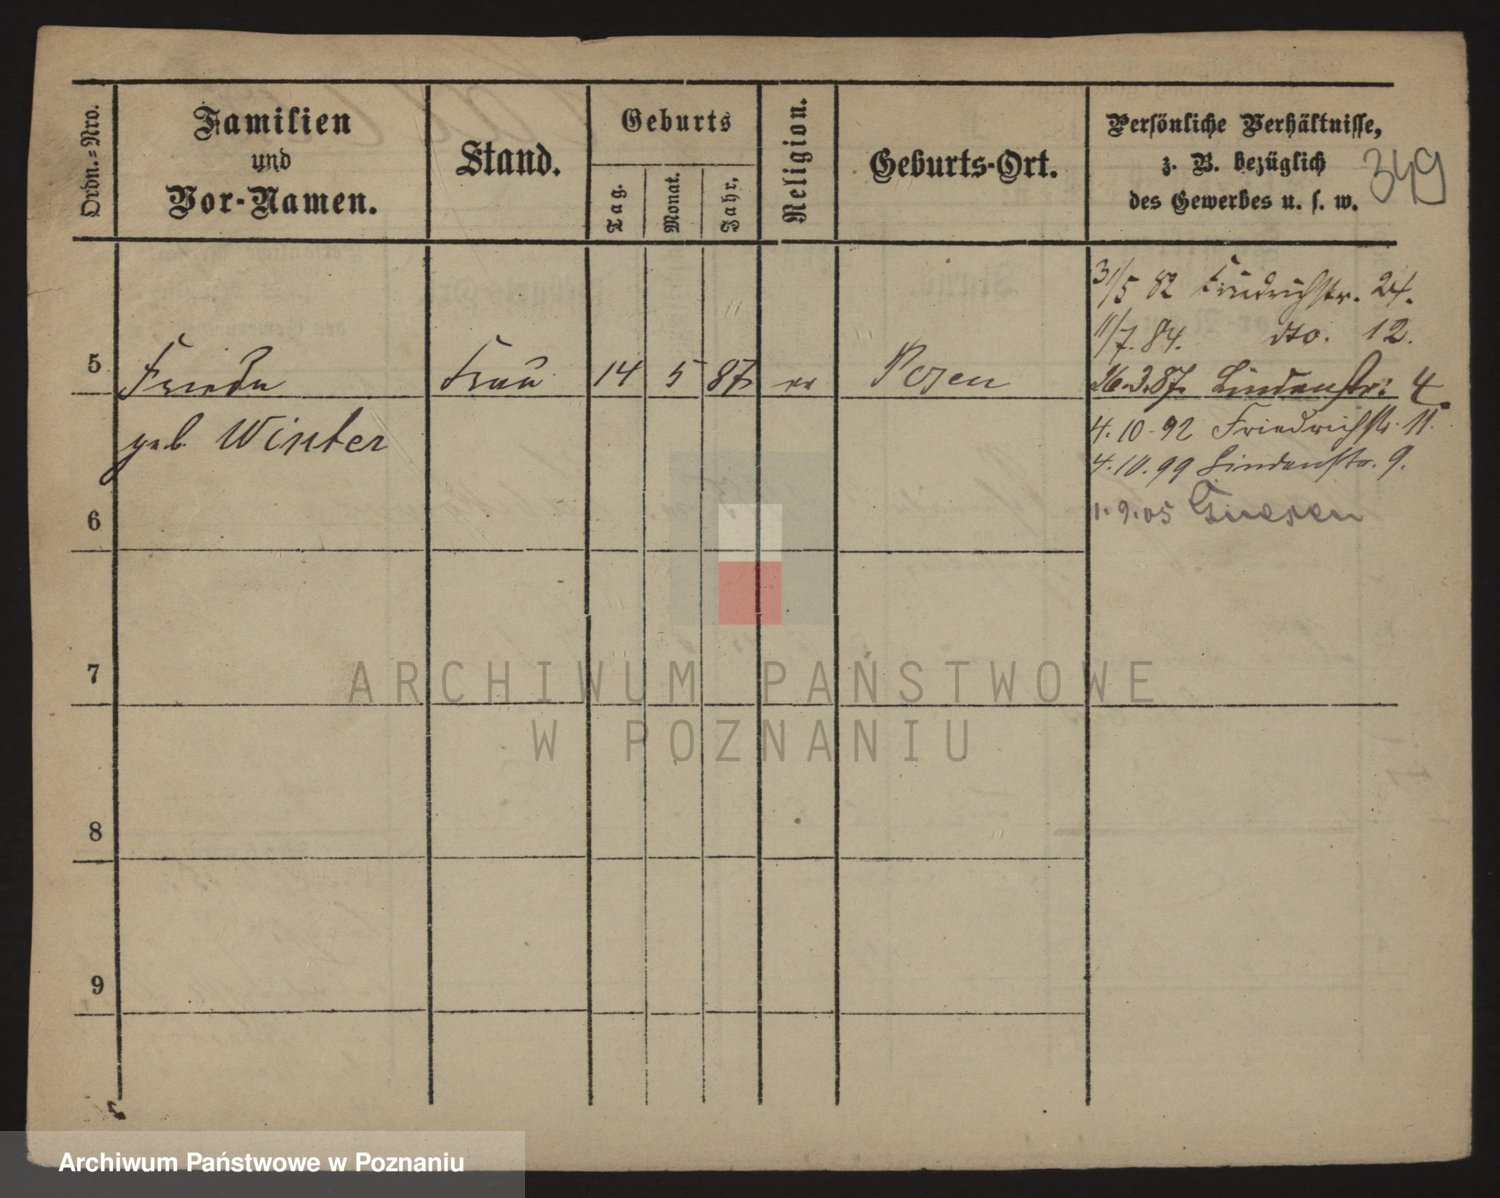 Ordn.-Nro.
Familien
und
Vor-Namen.
Stand.
Geburts
Tag.
Monat.
Jahr.
Religion.
Geburts-Ort.
Persönliche Verhältnisse,
z. B. bezüglich
des Gewerbes u. s. w.
349
31/5 82 Friedrichstr. 24.
11/7. 84. dto. 12.
5 Frieda Frau 14 5 87 Posen
26.3.87. Lindenstr: 4.
geb. Winter
4.10.92 Friedrichstr. 11.
4.10.99 Lindenstr. 9.
6
1.9.05 Gnesen
7
8
9
ARCHIWUM PAŃSTWOWE
W POZNANIU
Archiwum Państwowe w Poznaniu